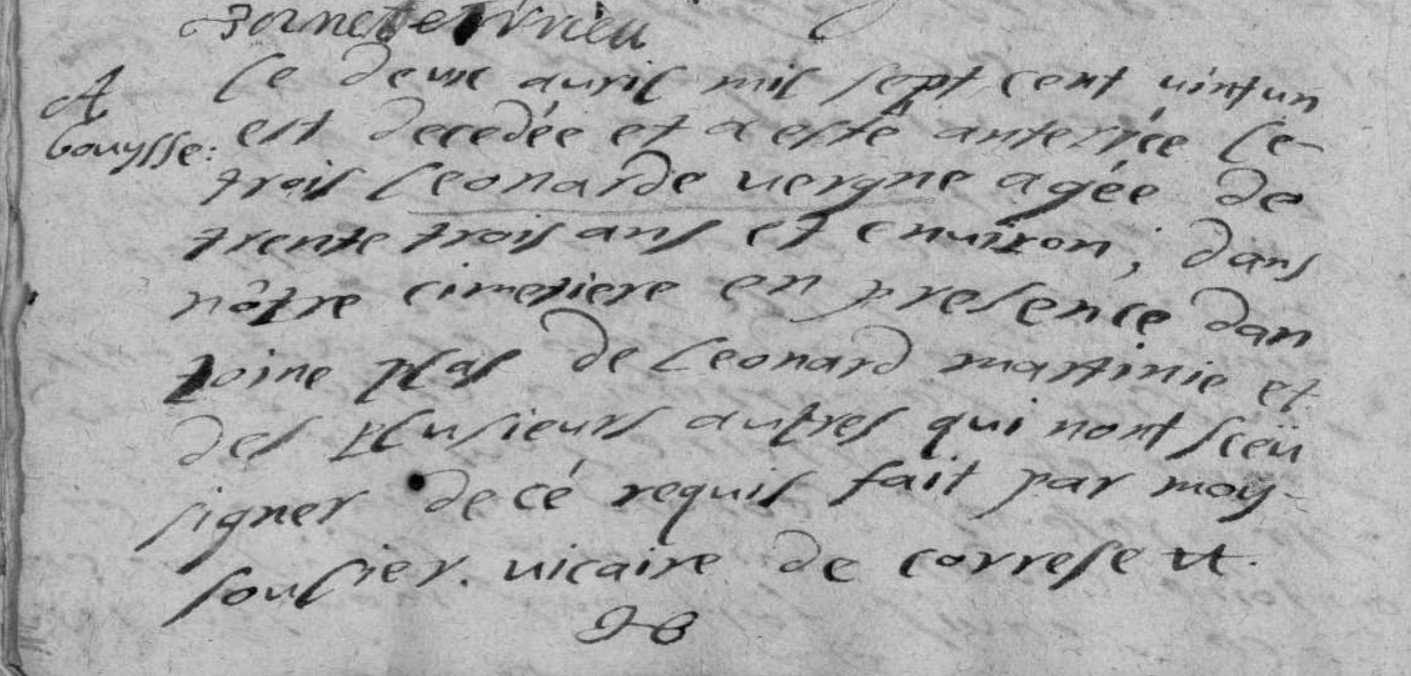 A
bouysse:
le deuxe auril mil sept cent uintun
est decedée et a esté anterrée le
trois leonarde uergne agée de
trente trois ans et enuiron; dans
nôtre cimetiere en presence dan
toine plas de leonard martinie et
des plusieurs autres qui nont sceü
signer de cé requis fait par moy-
soulier. uicaire de correse